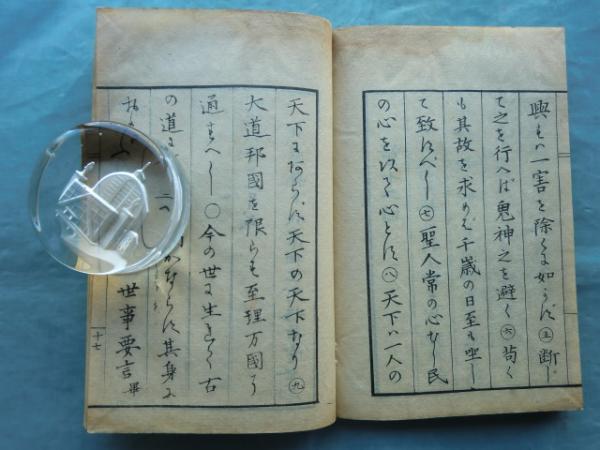 興すハ一害を除くに如かず㊄断じ
て之を行へば鬼神之を避く㊅苟くも
其故を求めば千歳の日至も坐し
て致すべし㊆聖人常の心なし民
の心を以て心とす㊇天下ハ一人の
天下にあらず天下の天下なり㊈
大道邦國を限らず至理万國に
通ずべし〇今の世に生れて古
の道に
かならず其身に
世事要言畢
十七